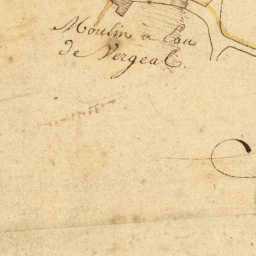 Moulin à Eau
de Vergeal.